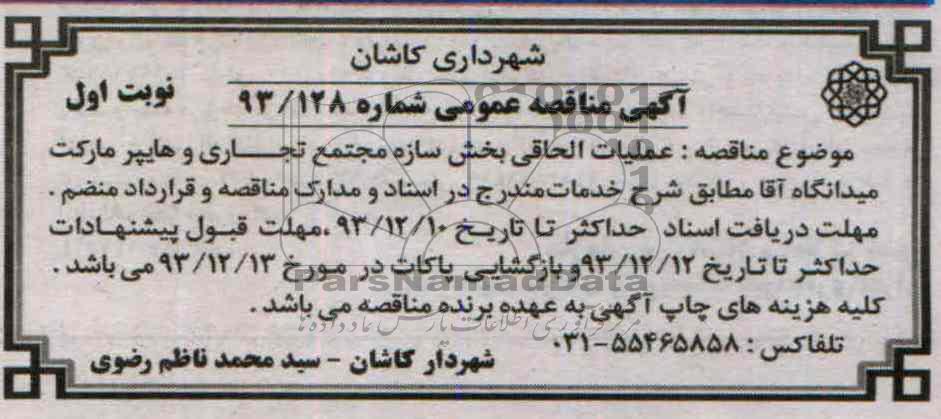 شهرداری کاشان
آگهی مناقصه عمومی شماره ۹۳/۱۲۸
نوبت اول
موضوع مناقصه : عملیات الحاقی بخش سازه مجتمع تجـــاری و هایپر مارکت
میدانگاه آقا مطابق شرح خدمات مندرج در اسناد و مدارک مناقصه و قرارداد منضم .
مهلت دریافت اسناد حداکثر تـا تاریـخ ۹۳/۱۲/۱۰ ،مهلت قبـول پیشنهـادات
حداکثـر تا تـاریخ ۹۳/۱۲/۱۲و بازگشایی پاکات در مـورخ ۹۳/۱۲/۱۳ می باشد .
کلیه هزینه های چاپ آگهی به عهده برنده مناقصه می باشد .
تلفاکس : ۵۵۴۶۵۸۵۸-۰۳۱
شهردار کاشان - سید محمد ناظم رضوی
ParsNamadData